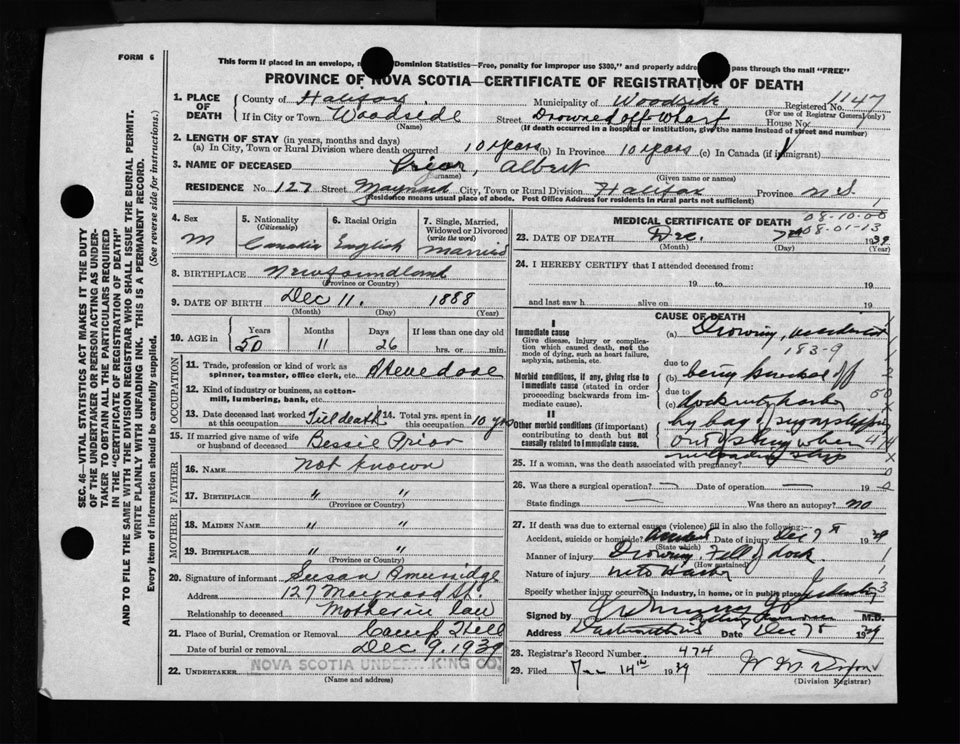 FORM 6
This form if placed in an envelope, Dominion Statistics—Free, penalty for improper use $300," and properly pass through the mail "FREE"
PROVINCE OF NOVA SCOTIA—CERTIFICATE OF REGISTRATION OF DEATH
1. PLACE OF DEATH
County of Halifax Municipality of Woodside Registered No. 1147
(For use of Registrar General only)
If in City or Town Woodside Street Drowned off Wharf House No.
(Name) (If death occurred in a hospital or institution, give the name instead of street and number)
2. LENGTH OF STAY (in years, months and days)
(a) In City, Town or Rural Division where death occurred 10 years (b) In Province 10 years (c) In Canada (if immigrant)
3. NAME OF DECEASED Prior, Albert
(Surname) (Given name or names)
RESIDENCE No. 127 Street Maynard City, Town or Rural Division Halifax Province N.S.
(Residence means usual place of abode. Post Office Address for residents in rural parts not sufficient)
4. Sex M
5. Nationality (Citizenship) Canadian
6. Racial Origin English
7. Single, Married, Widowed or Divorced (write the word) Married
8. BIRTHPLACE Newfoundland
(Province or Country)
9. DATE OF BIRTH Dec 11. 1888
(Month) (Day) (Year)
10. AGE in Years 50 Months 11 Days 26 If less than one day old hrs. or min.
OCCUPATION
11. Trade, profession or kind of work as spinner, teamster, office clerk, etc. Stevedore
12. Kind of industry or business, as cotton-mill, lumbering, bank, etc.
13. Date deceased last worked at this occupation Till death 14. Total yrs. spent in this occupation 10 yrs
15. If married give name of wife or husband of deceased Bessie Prior
FATHER
16. NAME not known
17. BIRTHPLACE " "
(Province or Country)
MOTHER
18. MAIDEN NAME " "
19. BIRTHPLACE " "
(Province or Country)
20. Signature of informant Susan
Address 127 Maynard St.
Relationship to deceased Mother in law
21. Place of Burial, Cremation or Removal Camp Hill
Date of burial or removal Dec 9, 1939
22. UNDERTAKER NOVA SCOTIA UNDERTAKING CO.
(Name and address)
MEDICAL CERTIFICATE OF DEATH
08-10-00
08-01-13
23. DATE OF DEATH Dec. 7th 1939
(Month) (Day) (Year)
24. I HEREBY CERTIFY that I attended deceased from:
19 to 19
and last saw h alive on 19
CAUSE OF DEATH
I
Immediate cause
Give disease, injury or complication which caused death, not the mode of dying, such as heart failure, asphyxia, asthenia, etc.
(a) Drowning, accident
183-9
Morbid conditions, if any, giving rise to immediate cause (stated in order proceeding backwards from immediate cause).
due to
(b) being knocked off
due to
(c) dock into harbor
II
Other morbid conditions (if important) contributing to death but not causally related to immediate cause.
by bag of sugar slipping
out of sling when
unloading ship
25. If a woman, was the death associated with pregnancy?
26. Was there a surgical operation? — Date of operation — 19
State findings Was there an autopsy? no
27. If death was due to external causes (violence) fill in also the following:—
Accident, suicide or homicide? Accident Date of injury Dec 7th 1939
(State which)
Manner of injury Drowning. Fell off dock
(How sustained)
Nature of injury into Harbor
Specify whether injury occurred in industry, in home, or in public place Industry
Signed by M.D.
Address Dartmouth N.S. Date Dec 7th 1939
28. Registrar's Record Number 474
29. Filed Dec 14th 1939
(Division Registrar)
SEC. 46—VITAL STATISTICS ACT MAKES IT THE DUTY
OF THE UNDERTAKER OR PERSON ACTING AS UNDERTAKER TO OBTAIN ALL THE PARTICULARS REQUIRED
IN THE "CERTIFICATE OF REGISTRATION OF DEATH"
AND TO FILE THE SAME WITH THE DIVISION REGISTRAR WHO SHALL ISSUE THE BURIAL PERMIT.
WRITE PLAINLY WITH UNFADING INK. THIS IS A PERMANENT RECORD.
Every item of information should be carefully supplied. (See reverse side for instructions.)